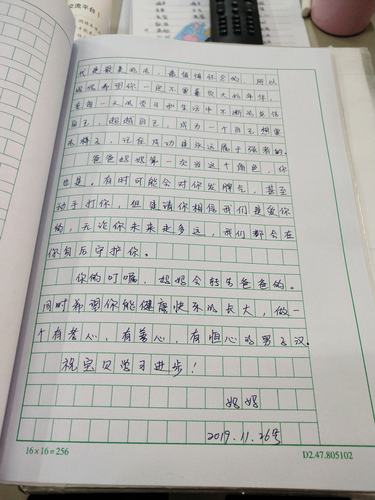 交流平台
代是最美的风，最值得信分的，所以
妈妈希望你一定不要辜负大好年华，
希望一天风学习和生活中不断的坚信
自己，超越自己，成为一个自己想要
的样子，记住成功是永远属于强者的。
爸爸妈妈第一次当这个角色，你
也是。有时可能会对你发脾气，甚至
动手打你，但是请你相信我们是爱你
的，无论你未来走多远，我们都会在
你身后守护你。
你的叮嘱，妈妈会转告爸爸的。
同时希望你能健康快乐的长大，做一
个有孝心，有善心，有恒心的男子汉。
祝宝贝学习进步！
妈妈
2019.11.26号
16×16=256
D2.47.805102